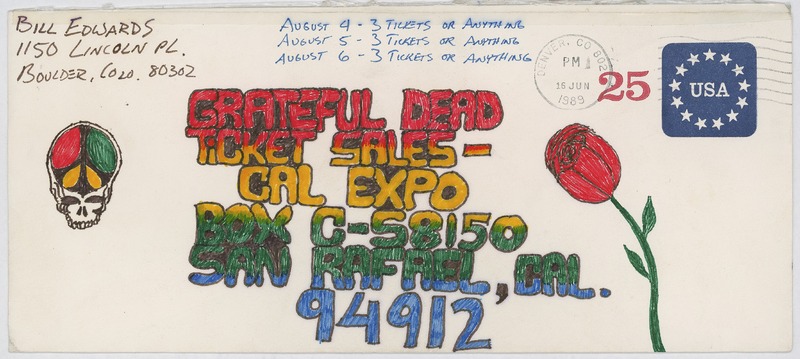 BILL EDWARDS
1150 LINCOLN PL.
BOULDER, COLO. 80302
AUGUST 4 - 3 TICKETS OR ANYTHING
AUGUST 5 - 3 TICKETS OR ANYTHING
AUGUST 6 - 3 TICKETS OR ANYTHING
DENVER, CO 802
PM
15 JUN
1989
25
USA
GRATEFUL DEAD
TICKET SALES -
CAL EXPO
BOX C-S8150
SAN RAFAEL, CAL.
94912